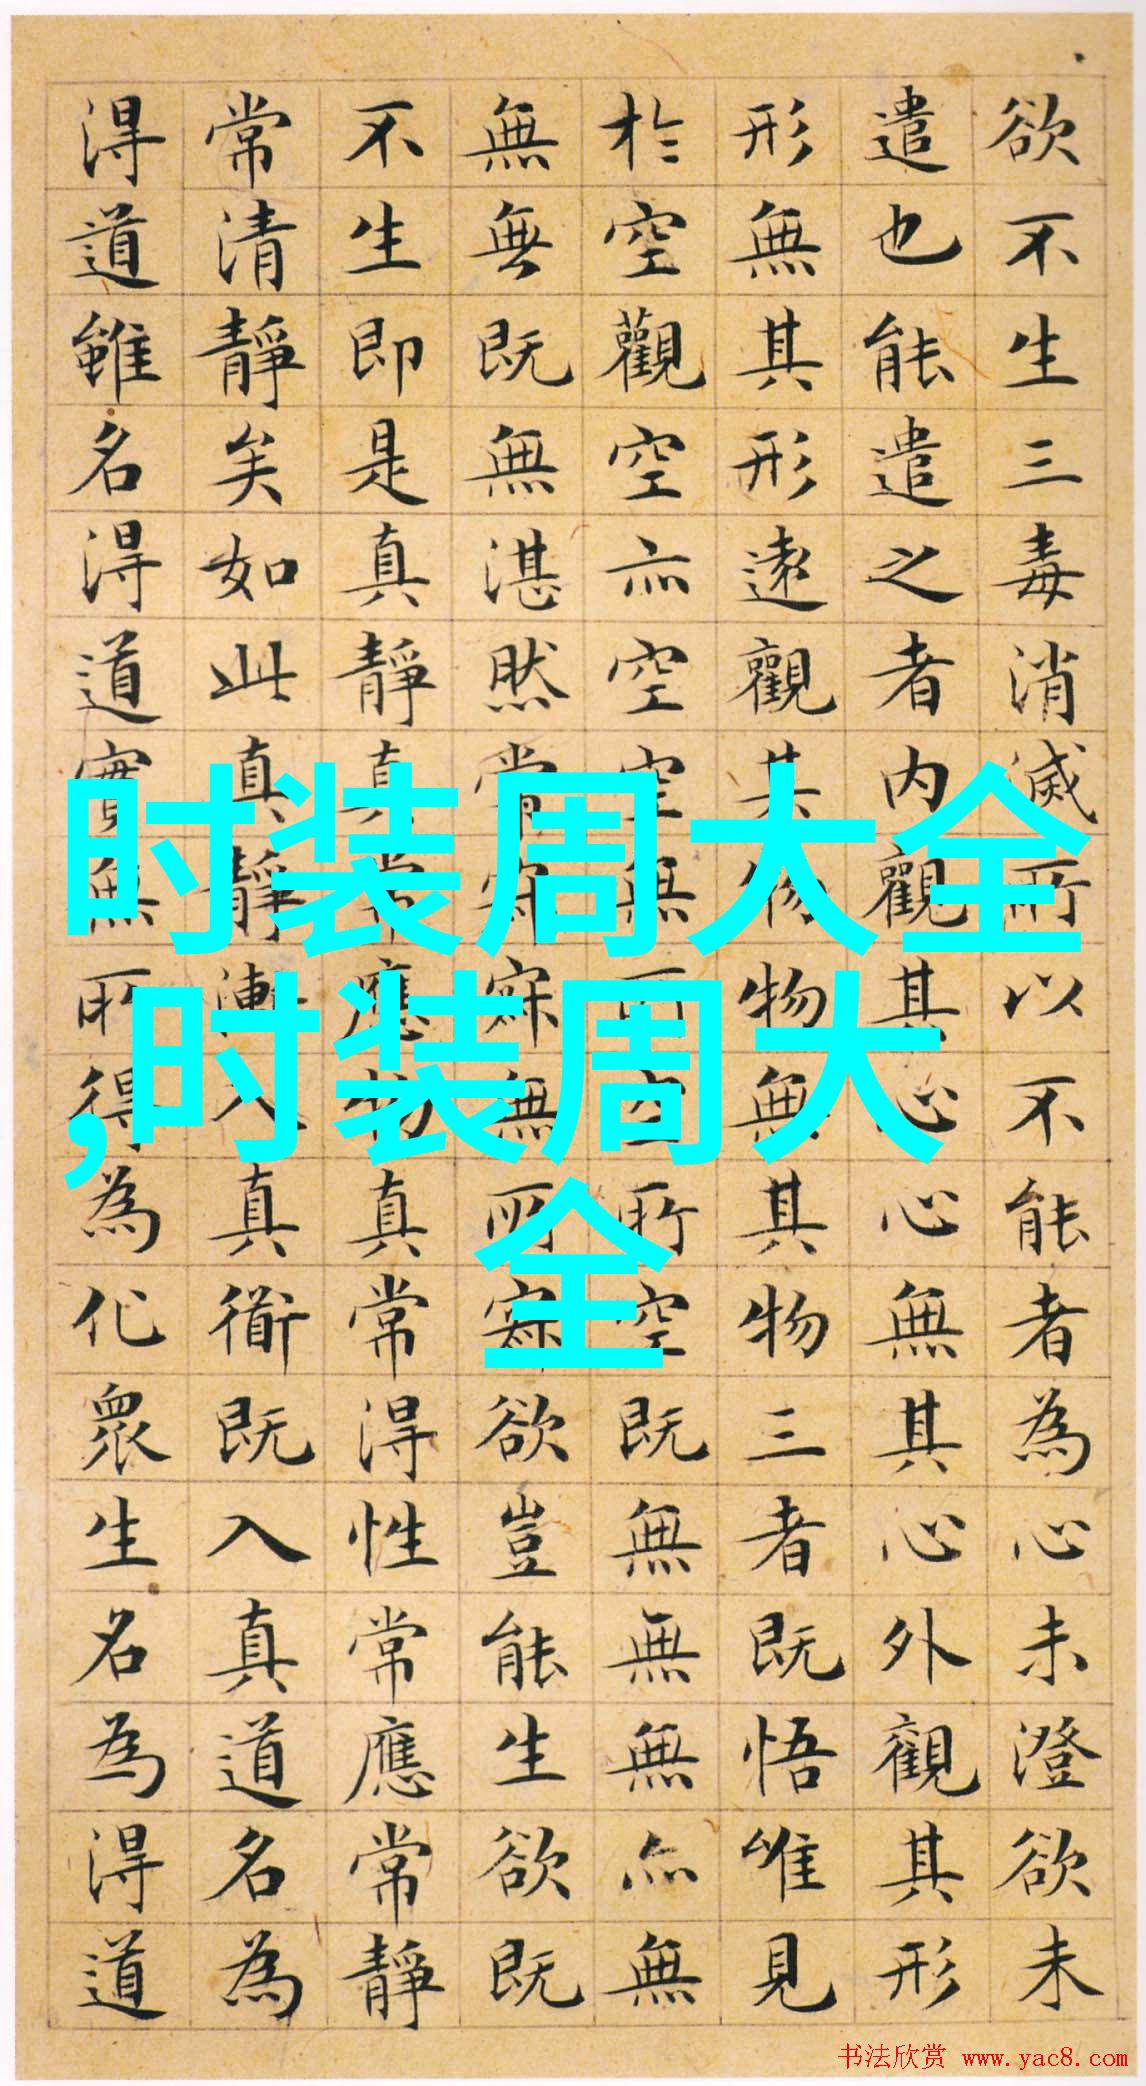 欲不生三毒消滅所以不能者為心未澄欲未
遣也能遣之者内觀其心心無其心外觀其形
形無其形遠觀其物物無其物三者既悟唯見
於空觀空亦空空無所空所空既無無無亦無
無無既無湛然常寂寂無所寂欲豈能生欲既
不生即是真靜真常應物真常得性常應常靜
常清靜矣如此真靜漸入真衜既入真道名為
得道雖名得道實無所得為化眾生名為得道
时装周大全
,时装周大
全
书法欣赏 www.yac8.com